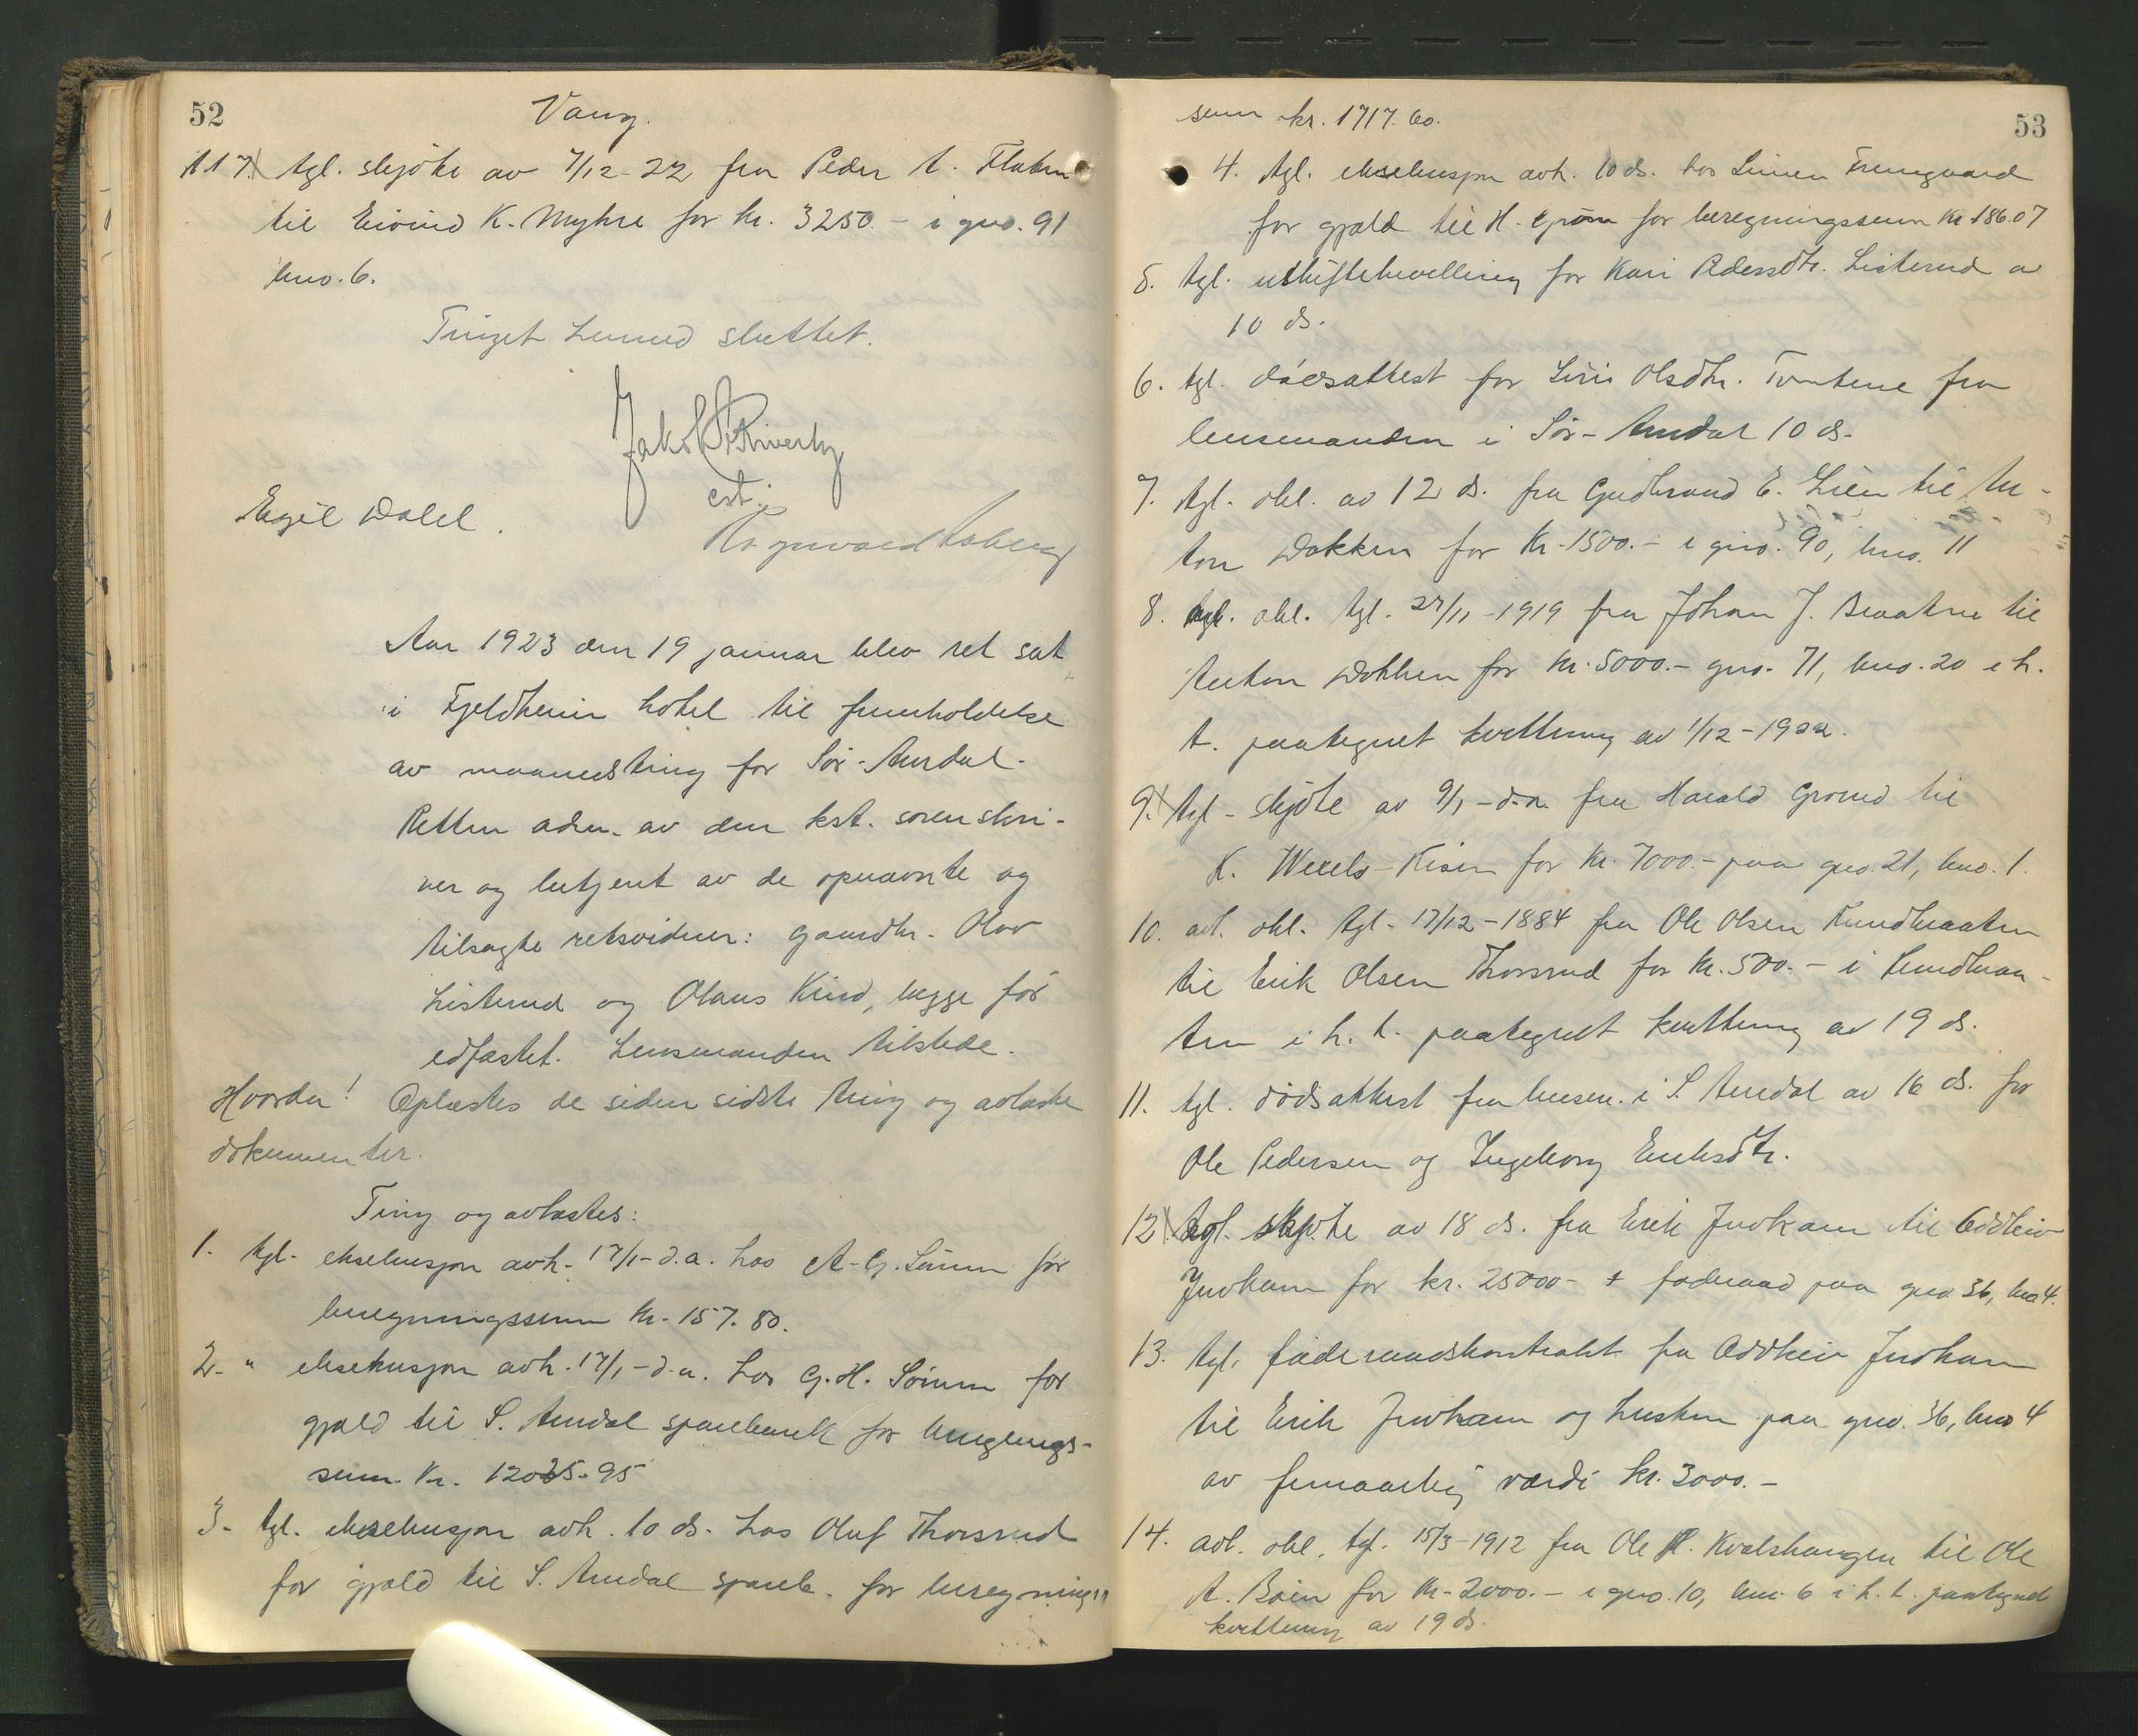 52
Vang.
117. tgl. skjöte av 7/12-22 fra Peder A. Flaten
til Eivind K. Myhre for kr. 3250.- i gno. 91
bno. 6.
Tinget hermed sluttet.
Jakob
cst.
Egil Dalel.
Aar 1923 den 19 januar blev ret sat
i Fjeldheim hotel til fremholdelse
av maanedsting for Sör-Aurdal.
Retten adm. av den kst. sorenskri-
ver og betjent av de opnævnte og
tilsagte retsvidner: gaardbr. Olav
Listerud og Olaus Kind, begge för
edfæstet. Lensmanden tilstede.
Hvorda! Oplæstes de siden sidste ting og avlæste
dokumenter.
Ting og avlæstes:
1. tgl. eksekusjon avh. 17/1-d.a. hos A. G. Sörum for
beregningssum kr. 157.80.
2. " eksekusjon avh. 17/1-d.a. hos G. H. Sörum for
gjæld til S. Aurdal sparebank for beregnings-
sum kr. 12025-95
3. tgl. eksekusjon avh. 10 ds. hos Oluf Thorsrud
for gjæld til S. Aurdal spareb. for beregnings
53
sum kr. 1717.60.
4. tgl. eksekusjon avh. 10 ds. hos Simen Fremgaard
for gjæld til H. for beregningssum kr 186.07
5. tgl. uskiftebevilling for Kari Pedersdtr. Listerud a
10 ds.
6. tgl. dödsattest for Siri Olsdtr. Tomtene fra
lensmanden i Sör-Aurdal 10 ds.
7. tgl. obl. av 12 ds. fra Gudbrand E. Lien til An-
ton Dokken for kr. 1500.- i gno. 90, bno. 11
8. avl. obl. tgl. 27/11-1919 fra Johan J. Braaten til
Anton Dokken for kr. 5000.- gno. 71, bno. 20 i h.
t. paategnet kvittering av 1/12-1922.
9. tgl. skjöte av 9/1-d.a. fra Harald Grönud til
K. Wexels-Riser for kr. 7000.- paa gno. 21, bno. 1.
10. avl. obl. tgl. 17/12-1884 fra Ole Olsen Rundbraaten
til Erik Olsen Thorsrud for kr. 500.- i Rundbraa-
ten i h. t. paategnet kvittering av 19 ds.
11. tgl. dödsattest fra lensm. i S. Aurdal av 16 ds. for
Ole Pedersen og Ingeborg Eriksdtr.
12. tgl. skjöte av 18 ds. fra Erik Juvkam til Oddleiv
Juvkam for kr. 25000- + föderaad paa gno 36, bno 4.
13. tgl. föderaadskontrakt fra Oddleiv Juvkam
til Erik Juvkam og hustru paa gno. 36, bno 4
av femaarlig værdi kr. 3000.-
14. avl. obl. tgl. 15/3-1912 fra Ole H. Kvalshaugen til Ole
A. Böen for kr. 2000.- i gno. 10, bno. 6 i h. t. paategnet
kvittering av 19 ds.